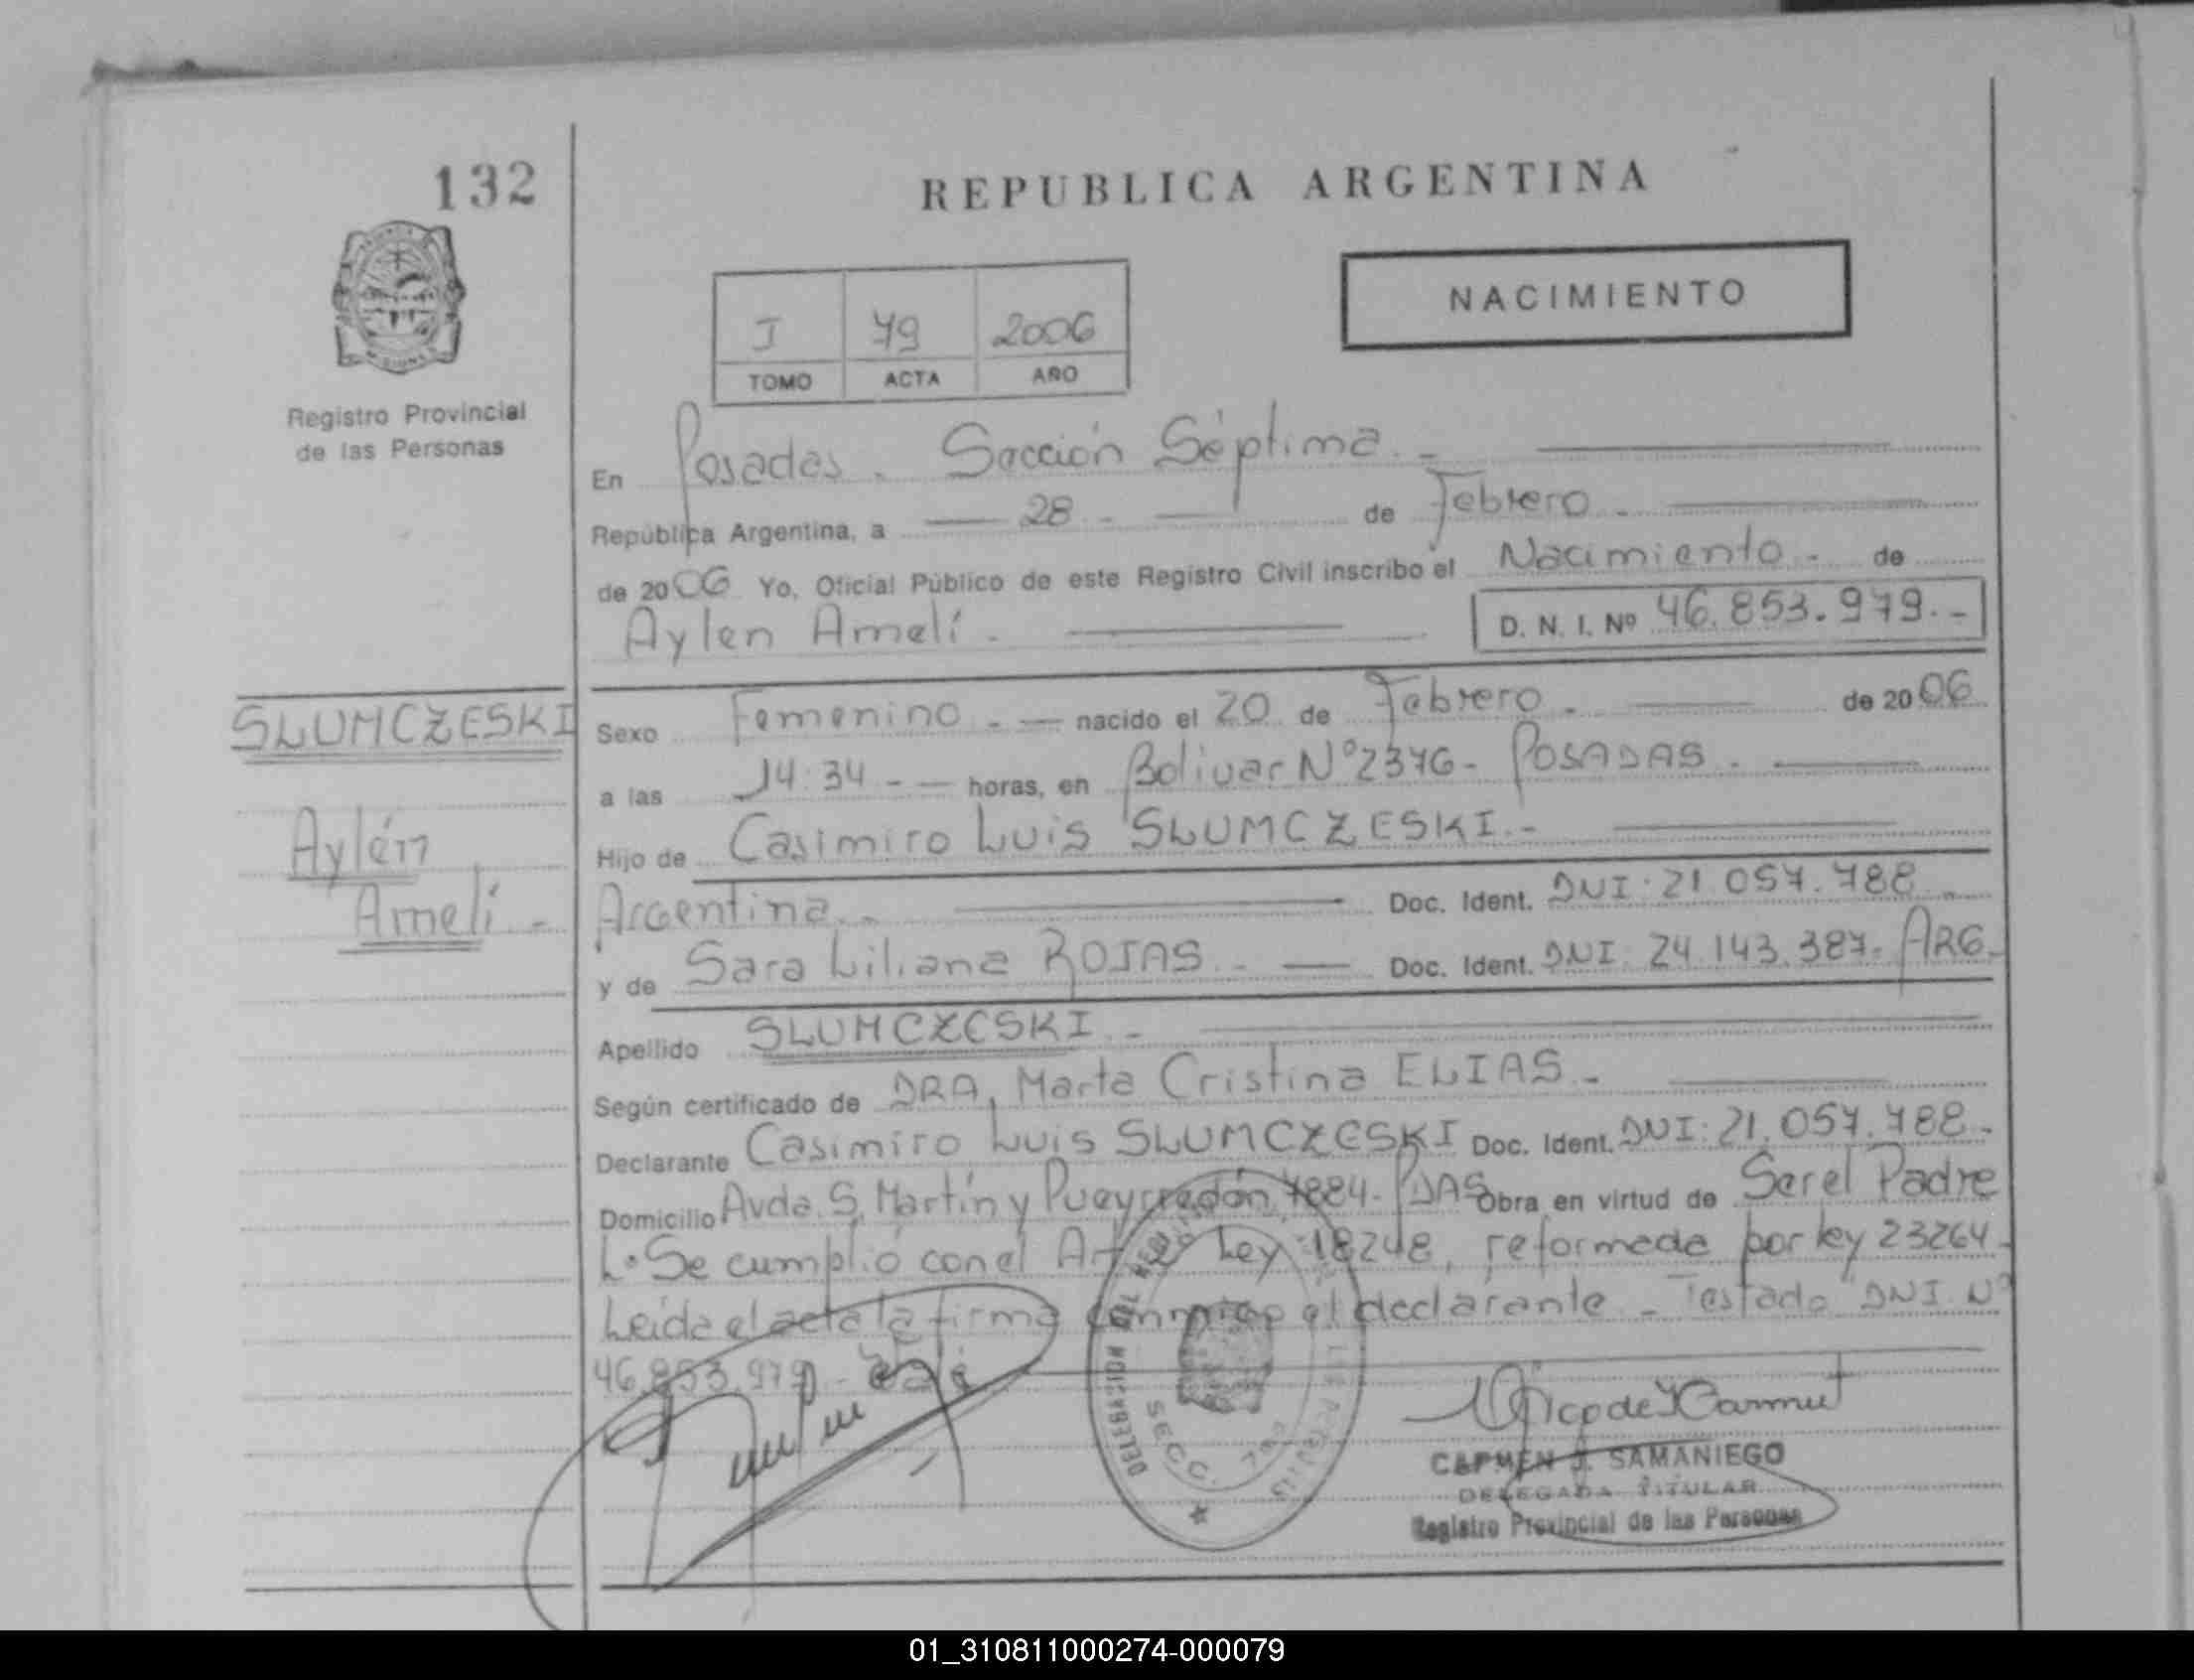 132
REPUBLICA ARGENTINA
NACIMIENTO
I 79 2006
TOMO ACTA AÑO
Registro Provincial
de las Personas
En Posadas. Sección Séptima.-
República Argentina, a 28 - de Febrero.
de 2006 Yo, Oficial Público de este Registro Civil inscribo el Nacimiento - de
Aylen Amelí. D. N. I. Nº 46.853.979.-
SLUMCZESKI
Aylén
Amelí -
Sexo Femenino. - nacido el 20 de Febrero. de 2006
a las 14:34 - - horas, en Bolivar Nº 2376- POSADAS.
Hijo de Casimiro Luis SLUMCZESKI.-
Argentina.- Doc. Ident. DNI: 21.057.788.-
y de Sara Liliana ROJAS. - Doc. Ident. DNI: 24.143.387- ARG.
Apellido SLUMCZESKI.-
Según certificado de DRA, Marta Cristina ELIAS.-
Declarante Casimiro Luis SLUMCZESKI Doc. Ident. DNI: 21.057.788-
Domicilio Avda. S. Martín y Pueyrredón, 7884- PDAS Obra en virtud de Ser el Padre
L. Se cumplió con el Art Ley 18248, reformada por ley 23264-
Leída el acta la firma conmigo el declarante - Testado "DNI Nº
46.853.979
DELEGACION
SECC. 7ma
CARMEN J. SAMANIEGO
DELEGADA TITULAR
Registro Provincial de las Personas
01_310811000274-000079